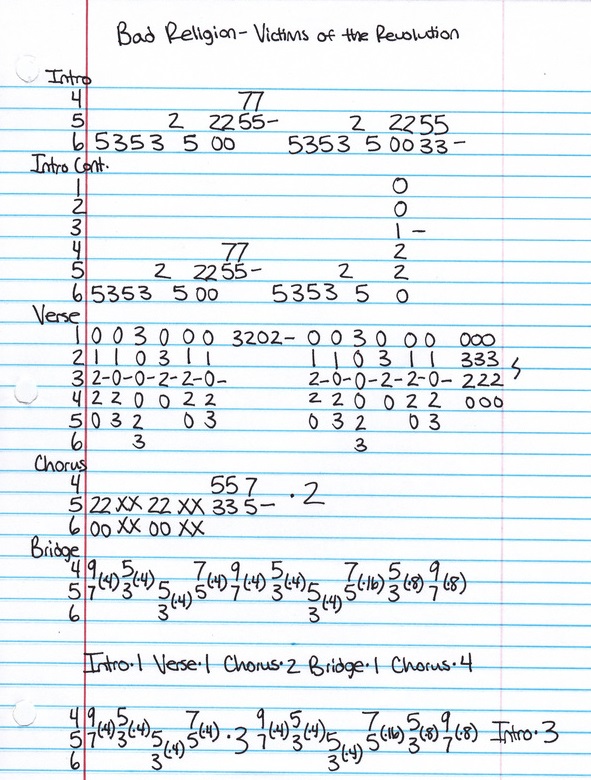 Bad Religion - Victims of the Revolution
Intro
4 77
5 2 2255- 2 2255
6 5353 5 00 5353 5 0033-
Intro Cont.
1 0
2 0
3 1 -
4 77 2
5 2 2255- 2 2
6 5353 5 00 5353 5 0
Verse
1 0 0 3 0 0 0 3202- 0 0 3 0 0 0 000
2 1 1 0 3 1 1 1 1 0 3 1 1 333
3 2-0-0-2-2-0- 2-0-0-2-2-0- 222
4 2 2 0 0 2 2 2 2 0 0 2 2 000
5 0 3 2 0 3 0 3 2 0 3
6 3 3
Chorus
4 55 7
5 22 XX 22 XX 33 5- ·2
6 00 XX 00 XX
Bridge
4 9 5 7 9 5 7 5 9
5 7(·4) 3(·4) 5 5(·4) 7(·4) 3(·4) 5 5(·16) 3(·8) 7(·8)
6 3(·4) 3(·4)
Intro·1 Verse·1 Chorus·2 Bridge·1 Chorus·4
4 9 5 7 9 5 7 5 9
5 7(·4) 3(·4) 5 5(·4) ·3 7(·4) 3(·4) 5 5(·16) 3(·8) 7(·8) Intro·3
6 3(·4) 3(·4)